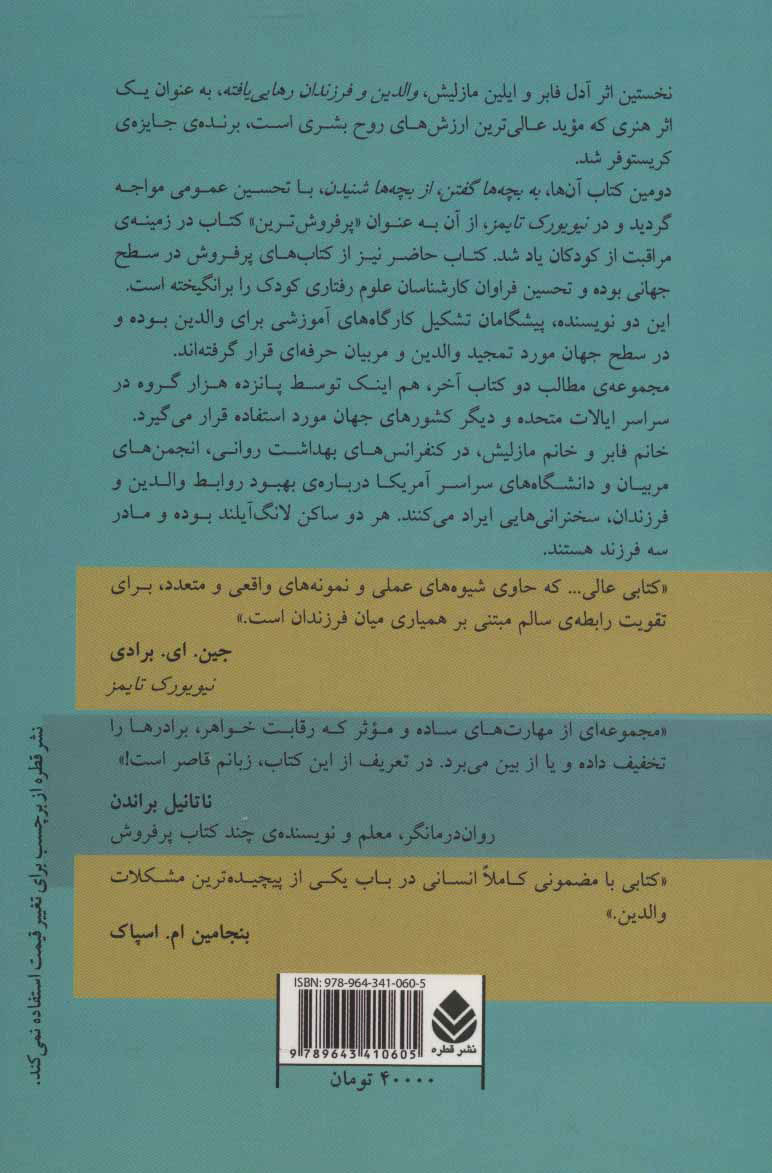 نخستین اثر آدل فابر و ایلین مازلیش، والدین و فرزندان رهایی‌یافته، به عنوان یک
اثر هنری که مؤید عالی‌ترین ارزش‌های روح بشری است، برنده‌ی جایزه‌ی
کریستوفر شد.
دومین کتاب آن‌ها، به بچه‌ها گفتن، از بچه‌ها شنیدن، با تحسین عمومی مواجه
گردید و در نیویورک تایمز، از آن به عنوان «پرفروش‌ترین» کتاب در زمینه‌ی
مراقبت از کودکان یاد شد. کتاب حاضر نیز از کتاب‌های پرفروش در سطح
جهانی بوده و تحسین فراوان کارشناسان علوم رفتاری کودک را برانگیخته است.
این دو نویسنده، پیشگامان تشکیل کارگاه‌های آموزشی برای والدین بوده و
در سطح جهان مورد تمجید والدین و مربیان حرفه‌ای قرار گرفته‌اند.
مجموعه‌ی مطالب دو کتاب آخر، هم اینک توسط پانزده هزار گروه در
سراسر ایالات متحده و دیگر کشورهای جهان مورد استفاده قرار می‌گیرد.
خانم فابر و خانم مازلیش، در کنفرانس‌های بهداشت روانی، انجمن‌های
مربیان و دانشگاه‌های سراسر آمریکا درباره‌ی بهبود روابط والدین و
فرزندان، سخنرانی‌هایی ایراد می‌کنند. هر دو ساکن لانگ‌آیلند بوده و مادر
سه فرزند هستند.
«کتابی عالی... که حاوی شیوه‌های عملی و نمونه‌های واقعی و متعدد، برای
تقویت رابطه‌ی سالم مبتنی بر همیاری میان فرزندان است.»
جین. ای. برادی
نیویورک تایمز
«مجموعه‌ای از مهارت‌های ساده و مؤثر که رقابت خواهر، برادرها را
تخفیف داده و یا از بین می‌برد. در تعریف از این کتاب، زبانم قاصر است!»
ناتانیل براندن
روان‌درمانگر، معلم و نویسنده‌ی چند کتاب پرفروش
«کتابی با مضمونی کاملاً انسانی در باب یکی از پیچیده‌ترین مشکلات
والدین.»
بنجامین ام. اسپاک
نشر قطره از برچسب برای تغییر قیمت استفاده نمی‌کند.
ISBN: 978-964-341-060-5
9 789643 410605
نشر قطره
۴۰۰۰۰ تومان